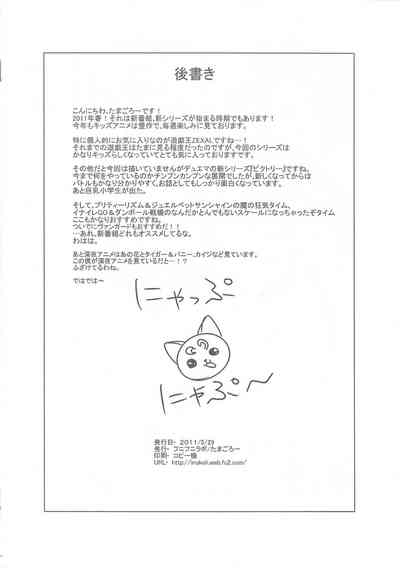 後書き
こんにちわ、たまごろーです！
2011年春！それは新番組、新シリーズが始まる時期でもあります！
今年もキッズアニメは豊作で、毎週楽しみに見ております。
特に個人的にお気に入りなのが遊戯王ZEXAL！
それまでの遊戯王はたまに見る程度だったのですが、今回のシリーズは
かなりキラキラしくなっていてとても気に入っております
その他だと今回は描いていませんがデュエマの新シリーズ『ビクトリー』ですね。
今まで何をやっているのかチンプンカンプンな展開でしたが、新しくなってからは
バトルもかなり分かりやすく、お話としてもしっかり面白くなっています。
あと巨乳小学生が出た。
そして、プリティーリズム＆ジュエルペットサンシャインの魔の狂気タイム、
イナイレGO＆ダンボール戦機のなんだかとんでもないスケールになっちゃったぞタイム
ここもかなりおすすめですね。
ついでにヴァンガードもおすすめだ！！
…あれ、新番組どれもオススメしてるな。
わはは。
あと深夜アニメはあの花とタイガー＆バニー、カイジなど見ています。
この僕が深夜アニメを見ているだと…！？
ふざけてるわね。
ではでは～
にゃっぷ
にゃぷ～
発行日： 2011/5/29
発行： フニフニラボ/たまごろー
印刷： コピー機
URL： http://inukoli.web.fc2.com/